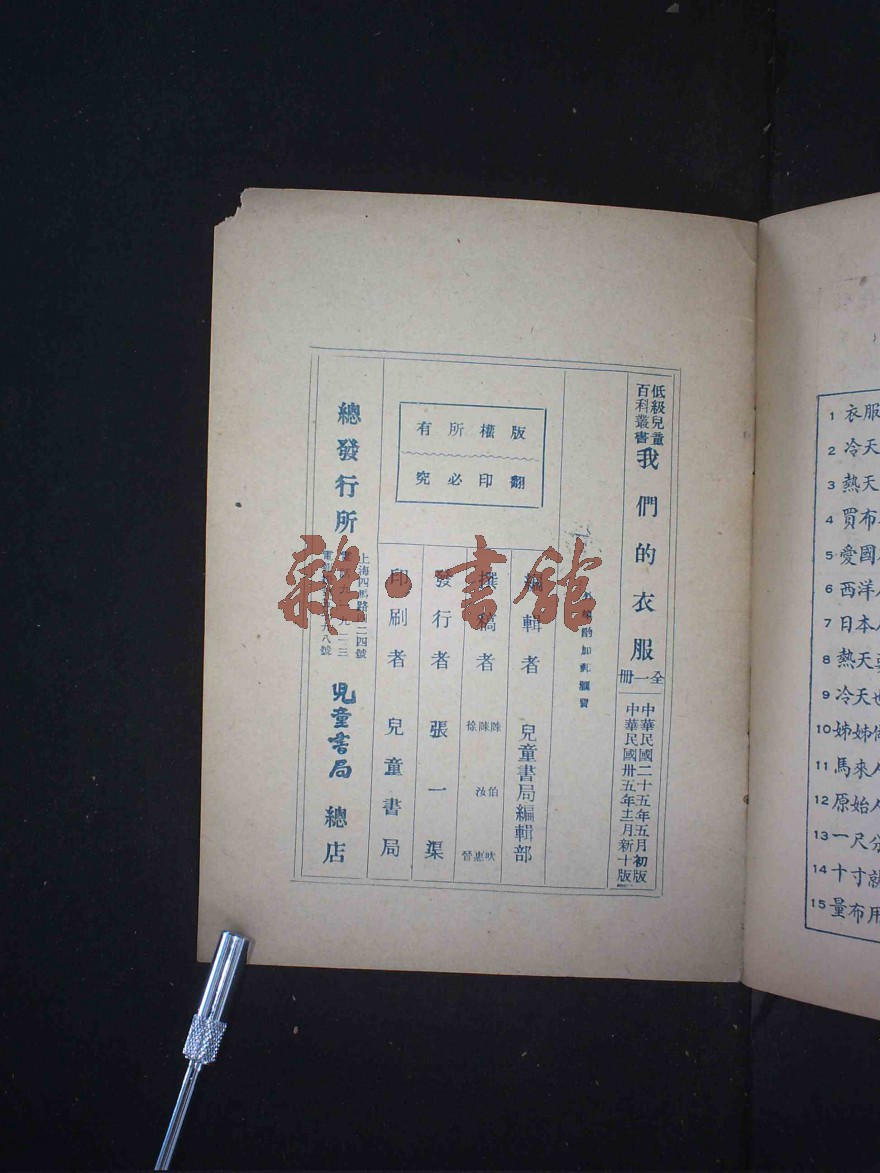 低級兒童
百科叢書
我們的衣服
全一冊
中華民國二十五年五月初版
中華民國卅五年十二月新十版
酌加郵匯費
版權所有
翻印必究
編輯者 兒童書局編輯部
撰稿者 陳伯吹 陳汝惠 徐晉
發行者 張一渠
印刷者 兒童書局
總發行所
上海四馬路四二四號
兒童書局 總店
雜·書館
1 衣服
2 冷天
3 熱天
4 買布
5 愛國
6 西洋人
7 日本人
8 熱天
9 冷天也
10 姊姊
11 馬來人
12 原始人
13 一尺分
14 十寸就
15 量布用